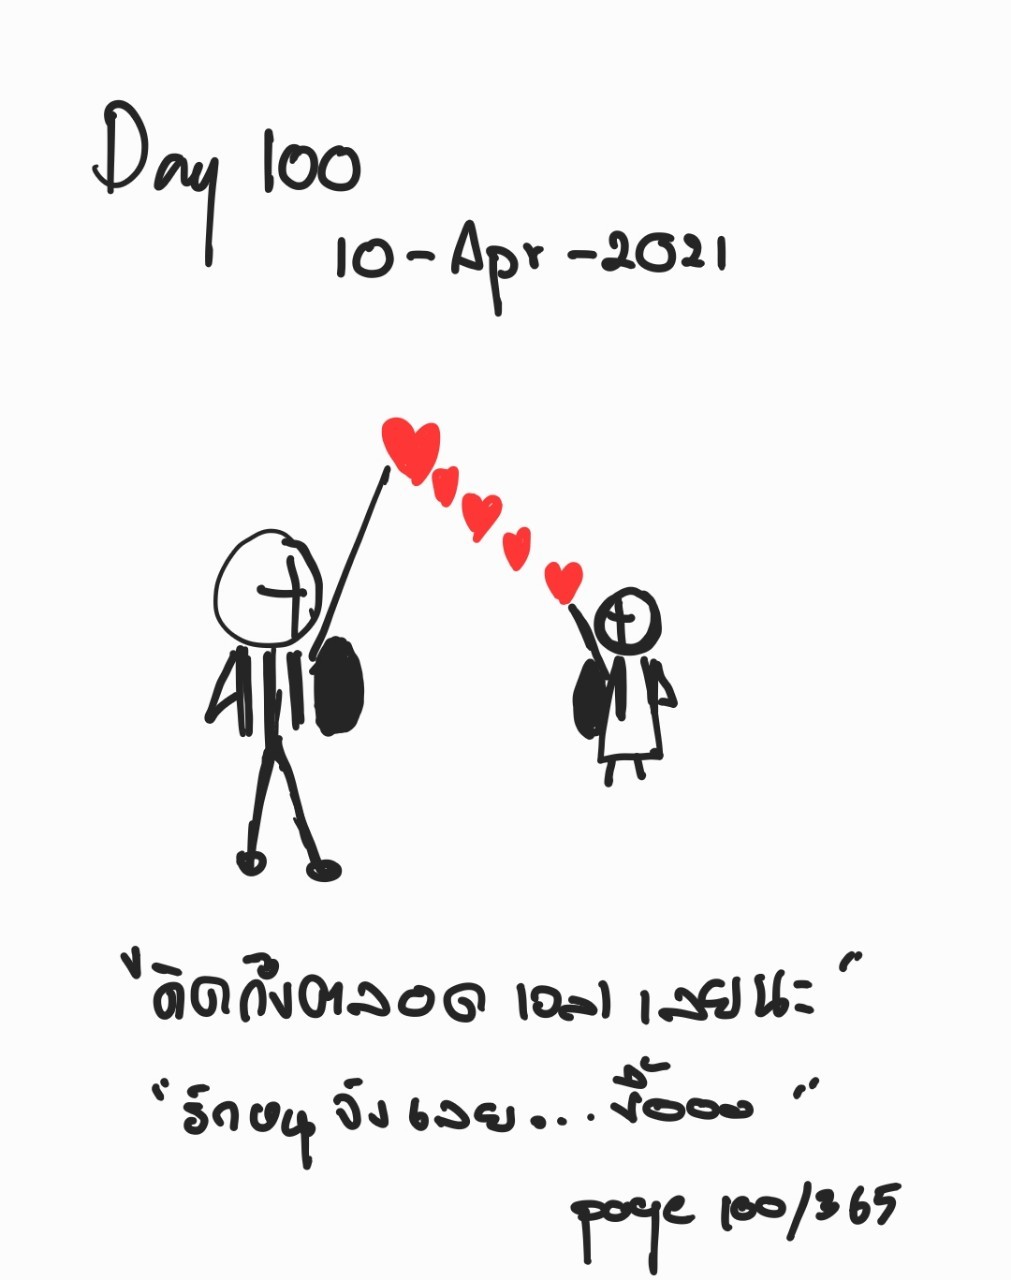 Day 100
10-Apr-2021
"คิดถึงตลอด เวลา เลยนะ"
"รักหนู จัง เลย...
page 100/365